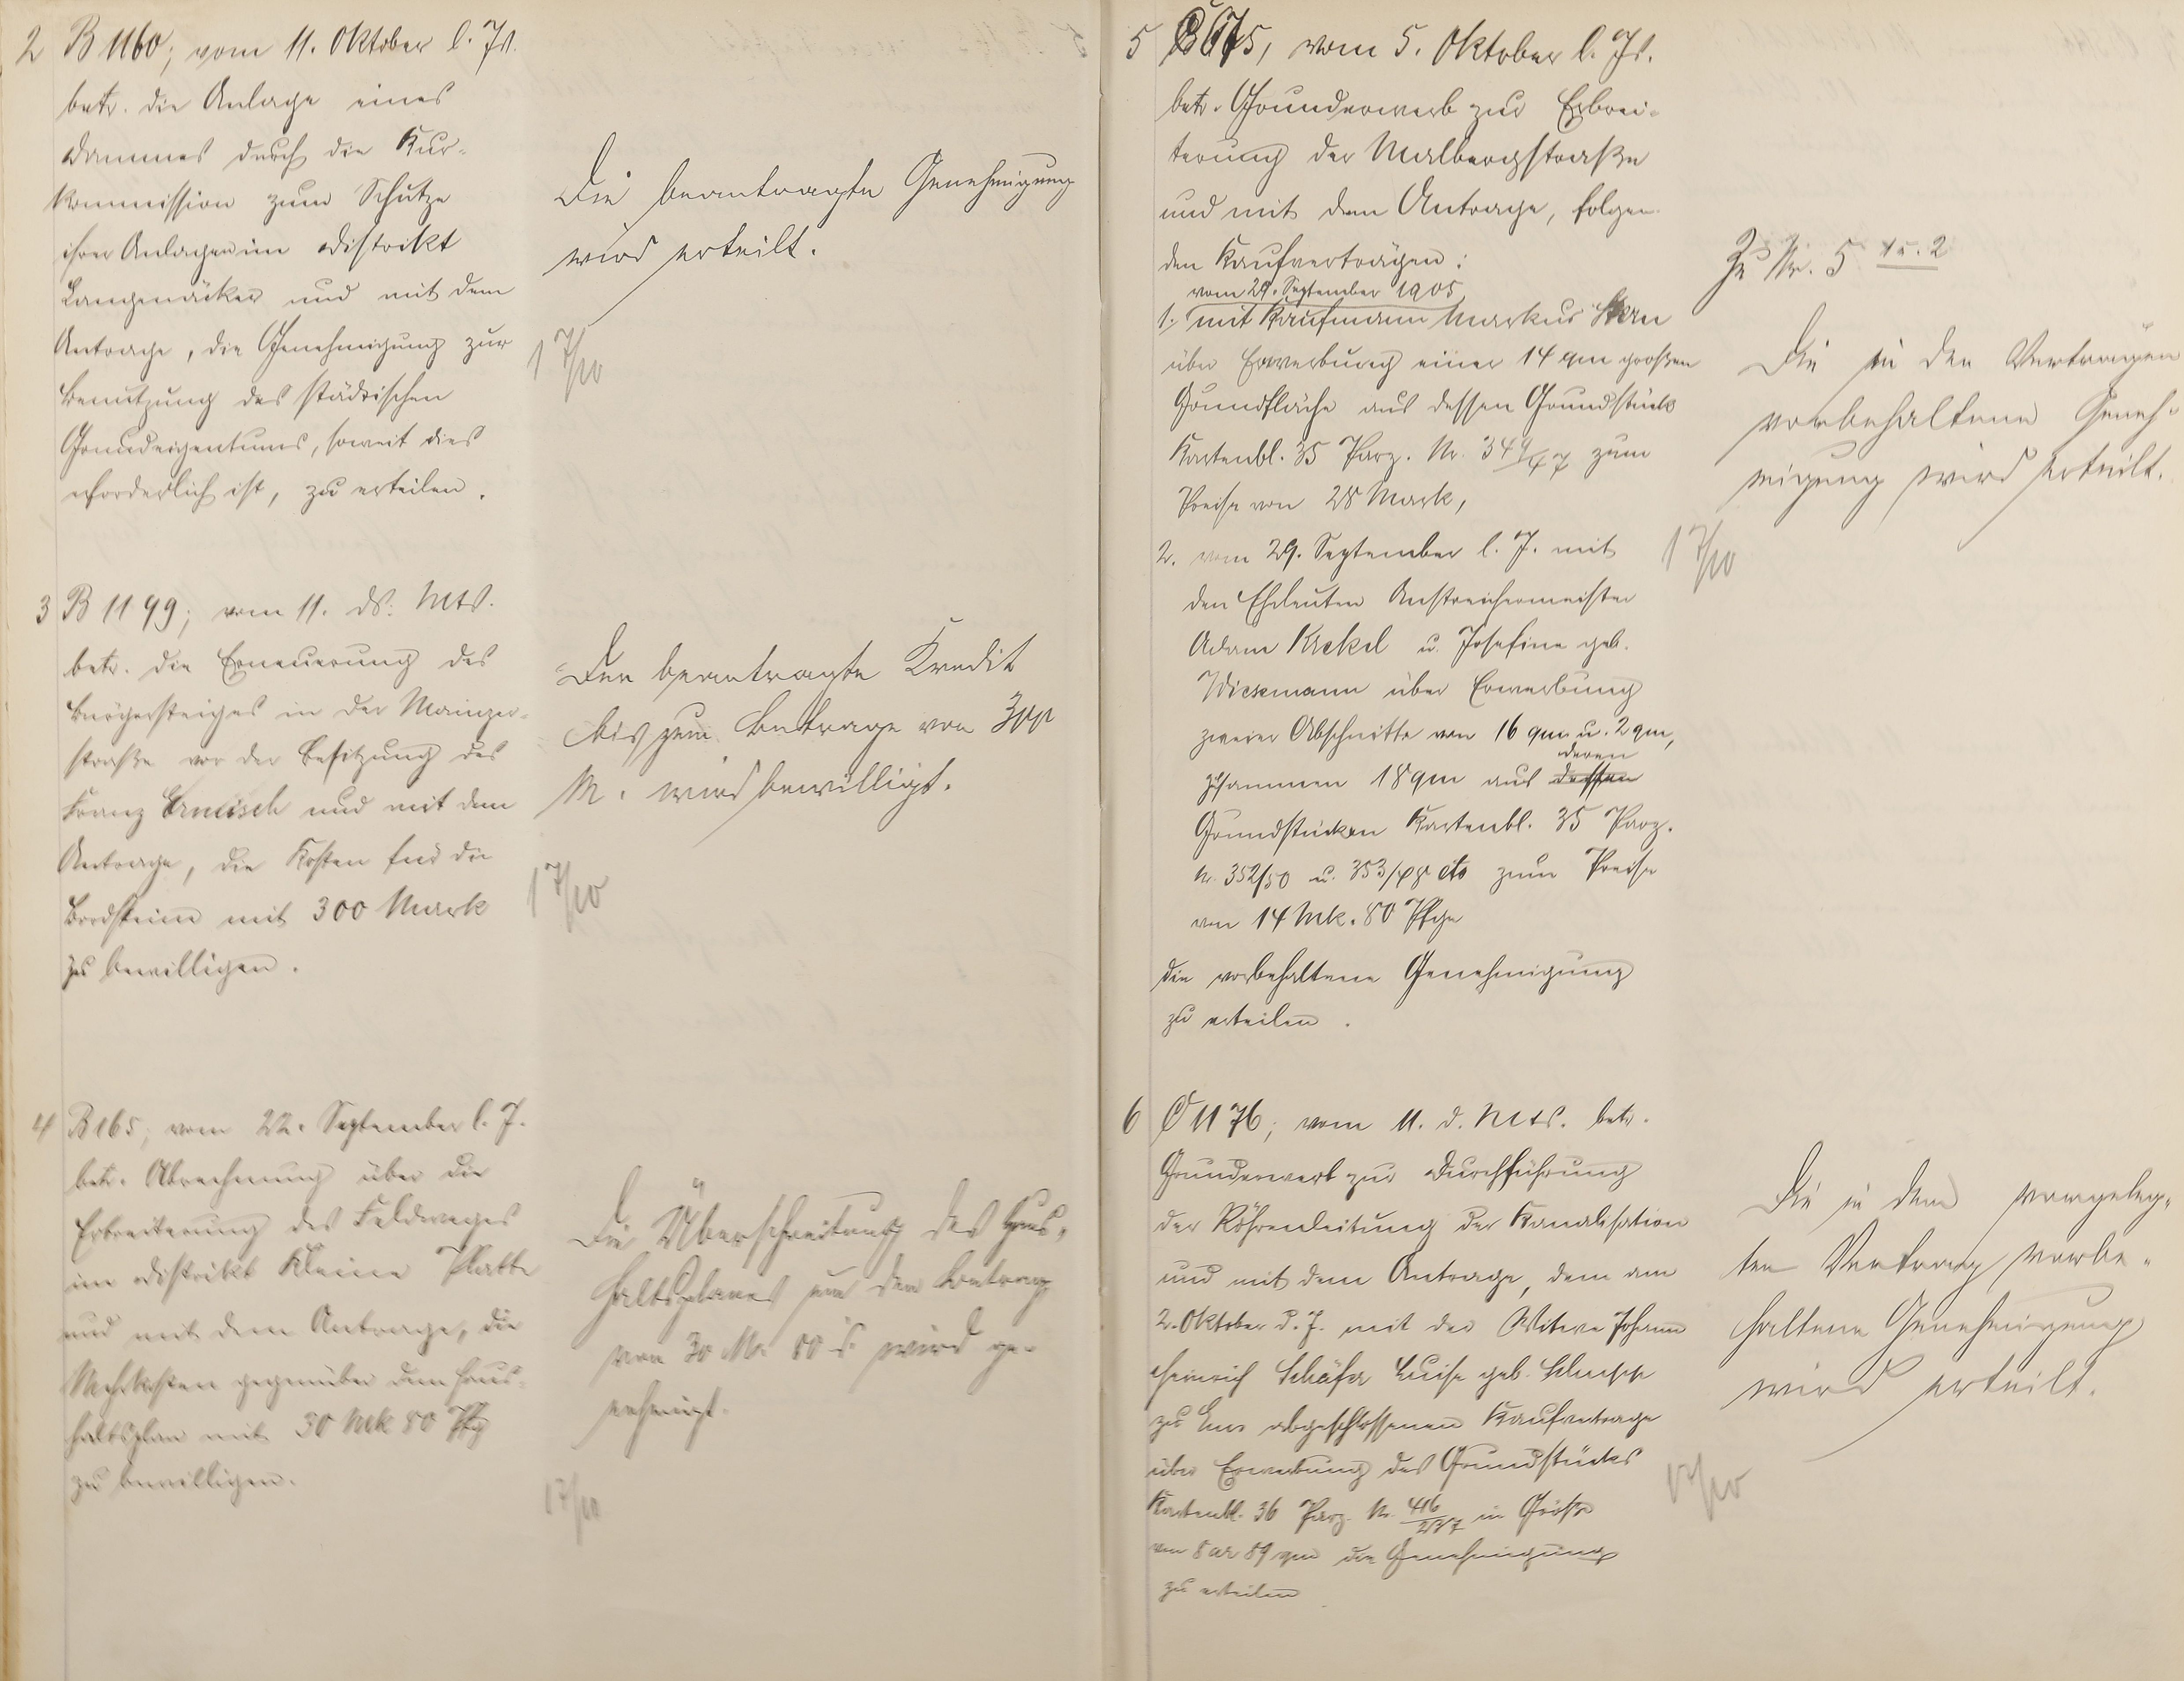 2 B 1160; vom 11. Oktober l. Js.
betr. die Anlage eines
Dammes durch die Kur-
kommission zum Schutze
ihrer Anlagen im Distrikt
Langenäcker und mit dem
Antrage, die Genehmigung zur
Benutzung des städtischen
Grundeigentums, soweit dies
erforderlich ist, zu erteilen.
Die beantragte Genehmigung
wird erteilt.
17/10
3 B 1199; vom 11. ds. Mts.
betr. die Erneuerung des
Bürgersteiges in der Mainzer-
straße vor der Besitzung des
Franz und mit dem
Antrage, die Kosten für die
Bordsteine mit 300 Mark
zu bewilligen.
Der beantragte Kredit
bis zum Betrage von 300
M. wird bewilligt.
17/10
4 B 165; vom 22. September l. J.
betr. Abrechnung über die
Erbreiterung des Feldweges
im Distrikt Kleine Platte
und mit dem Antrage, die
Mehrkosten gegenüber dem Haus-
haltsplan mit 30 Mk 80 Pfg
zu bewilligen.
Die Überschreitung des Haus-
haltsplanes um den Betrag
von 30 M. 80 wird ge-
nehmigt.
17/10
5 675, vom 5. Oktober l. Js.
betr. Grunderwerb zur Erbrei-
terung der Malbergstraße
und mit dem Antrage, folgen-
den Kaufverträgen:
vom 29. September 1905
1. mit Kaufmann Markus Stern
über Erwerbung einer 14 qm großen
Grundfläche aus dessen Grundstück
Kartenbl. 35 Parz. Nr. 349/47 zum
Preise von 28 Mark,
2. vom 29. September l. J. mit
den Eheleuten Anstreichermeister
Adam u. Josefine geb.
Wiesemann über Erwerbung
zweier Abschnitte von 16 qm u. 2 qm,
deren
zusammen 18 qm aus dessen
Grundstücken Kartenbl. 35 Parz.
Nr. 352/50 u. zum Preise
von 14 Mk. 80 Pfge
die vorbehaltene Genehmigung
zu erteilen.
Zu Nr. 5 1 u. 2
Die in den Verträgen
vorbehaltene Geneh-
migung wird erteilt.
17/10
6 C 1176; vom 11. d. Mts. betr.
Grunderwerb zur Durchführung
der Röhrenleitung der Kanalisation
und mit dem Antrage, dem am
2. Oktober d. J. mit der Witwe Johann
Heinrich Schäfer Luise geb.
zu Ems abgeschlossenen Kaufvertrage
über Erwerbung des Grundstücks
Kartenbl. 36 Parz. Nr. 416/237 in Größe
von 8 ar 89 qm die Genehmigung
zu erteilen
Die in dem vorgeleg-
ten Vertrag vorbe-
haltene Genehmigung
wird erteilt.
17/10